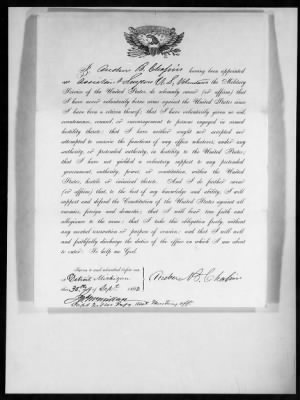 I, Andrew B. Chapin having been appointed
as Assistant Surgeon U.S. Volunteers the Military
Service of the United States, do solemnly swear (or affirm) that
I have never voluntarily borne arms against the United States since
I have been a citizen thereof; that I have voluntarily given no aid,
countenance, counsel, or encouragement to persons engaged in armed
hostility thereto; that I have neither sought nor accepted nor
attempted to exercise the functions of any office whatever, under any
authority, or pretended authority, in hostility to the United States;
that I have not yielded a voluntary support to any pretended
government, authority, power, or constitution, within the United
States, hostile or inimical thereto. And I do further swear
(or affirm) that, to the best of my knowledge and ability, I will
support and defend the Constitution of the United States against all
enemies, foreign and domestic; that I will bear true faith and
allegiance to the same; that I take this obligation freely, without
any mental reservation or purpose of evasion; and that I will well
and faithfully discharge the duties of the office on which I am about
to enter: So help me God.
Andrew B. Chapin
Sworn to and subscribed before me, at
Detroit Michigan
this 30th day of Sept. 186